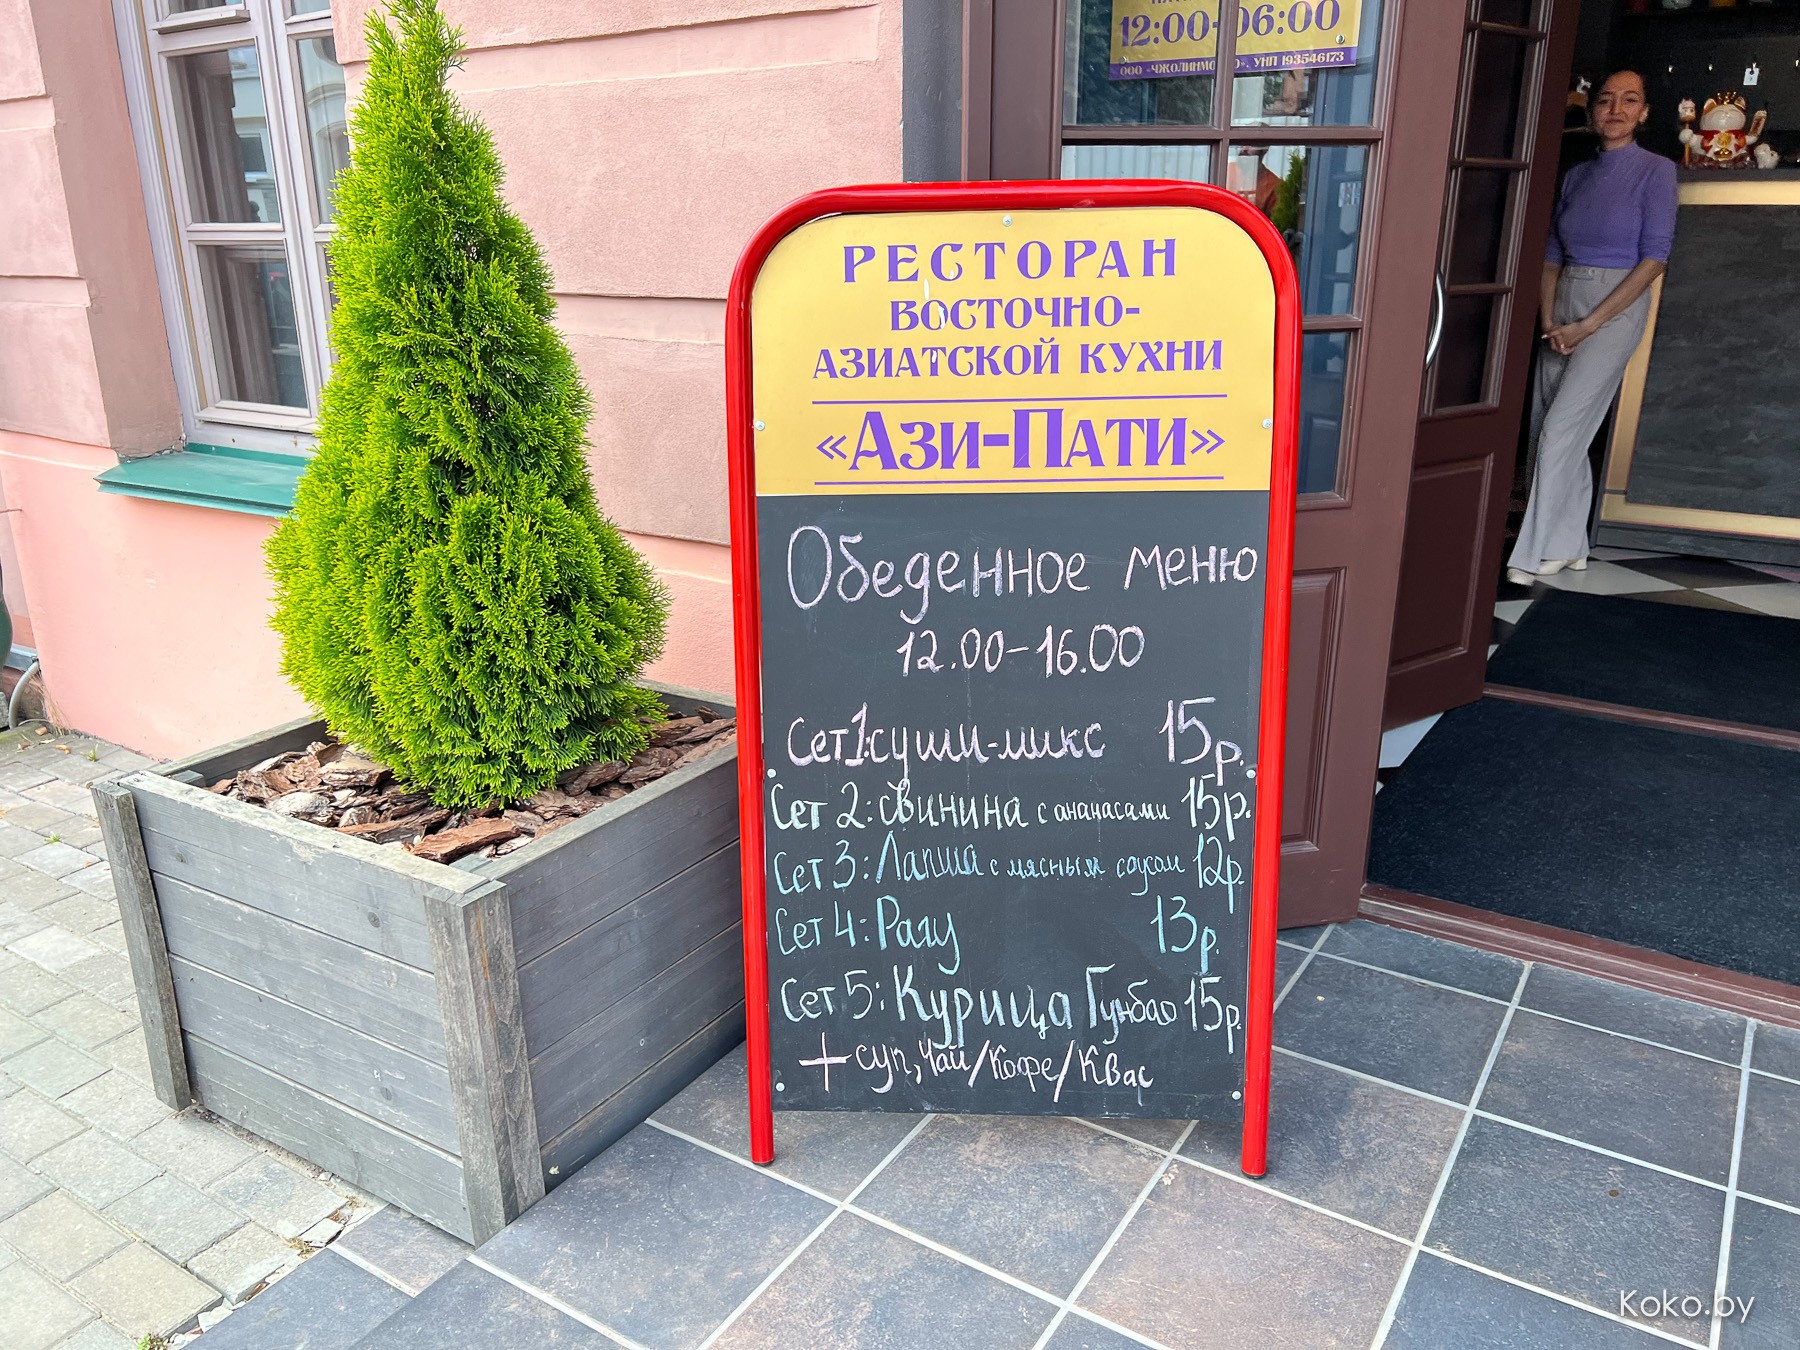 12:00-06:00
УНП 193546173
РЕСТОРАН
ВОСТОЧНО-
АЗИАТСКОЙ КУХНИ
«АЗИ-ПАТИ»
Обеденное меню
12.00-16.00
Сет 1: суши-микс 15р.
Сет 2: свинина с ананасами 15р.
Сет 3: Лапша с мясным соусом 12р.
Сет 4: Рагу 13р.
Сет 5: Курица Гунбао 15р.
+ суп, Чай/Кофе/Квас
Koko.by